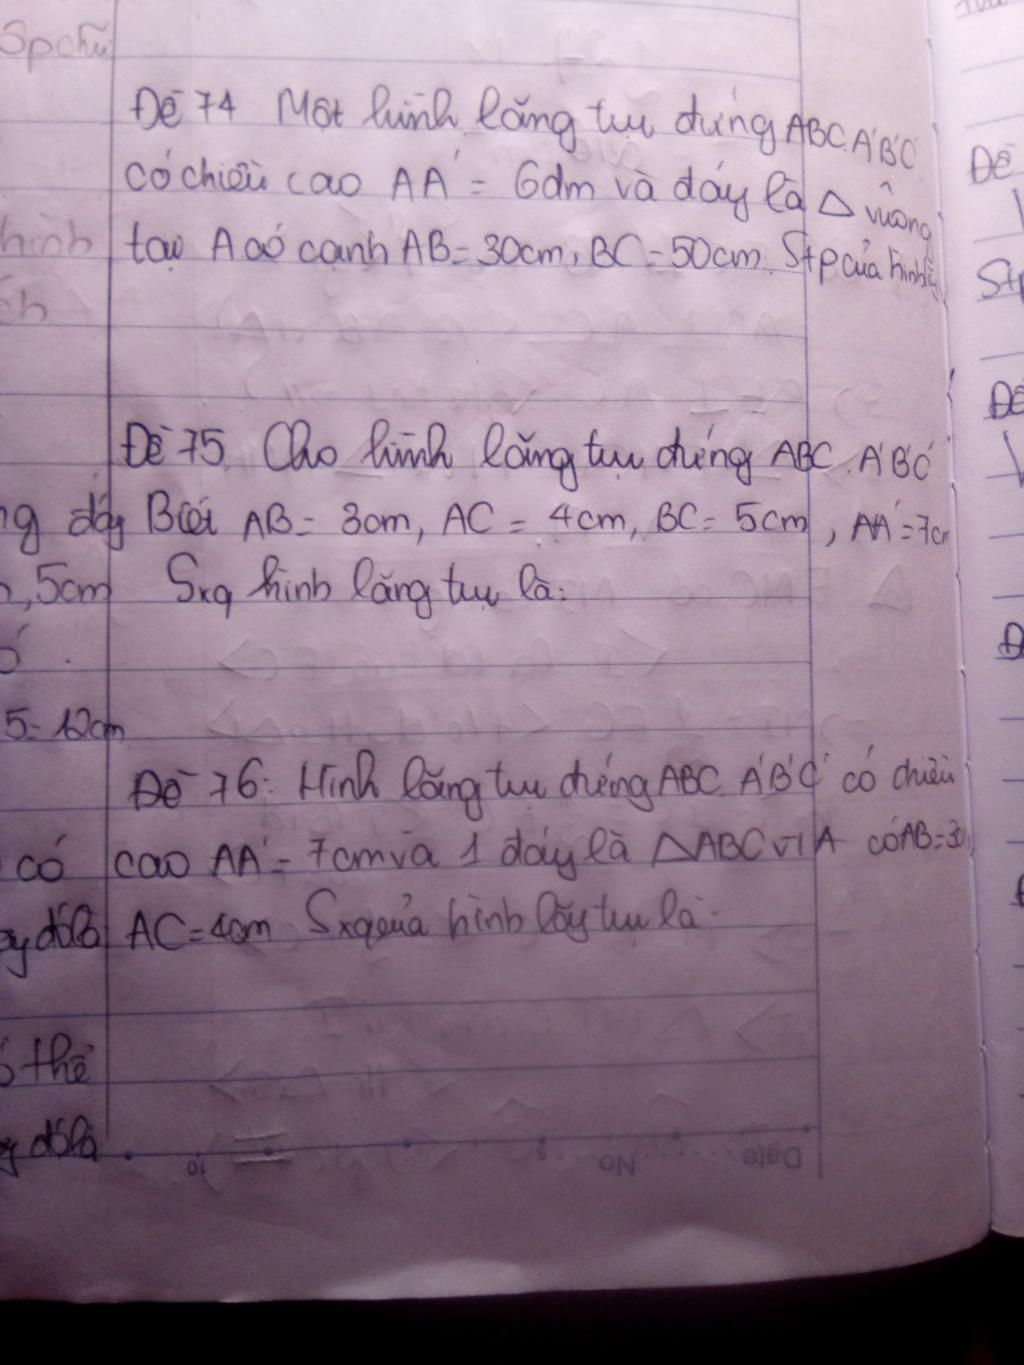 Sp chữ
Đề 74 Một hình lăng trụ đứng ABC.A'B'C'
có chiều cao AA' = 6dm và đáy là △ vuông
hình
tại A có cạnh AB = 30cm, BC = 50cm. Stp của hình
Đề 75. Cho hình lăng trụ đứng ABC.A'B'C'
đáy Biết AB = 3cm, AC = 4cm, BC = 5cm, AA' = 7cm
, 5cm Sxq hình lăng trụ là:
5 = 12cm
Đề 76: Hình lăng trụ đứng ABC.A'B'C' có chiều
có cao AA' = 7cm và 1 đáy là △ABC vT A có AB = 3
đó là AC = 4cm Sxq của hình lăg trụ là.
thể
đó là
Date No.
Đề
Stp
Đề